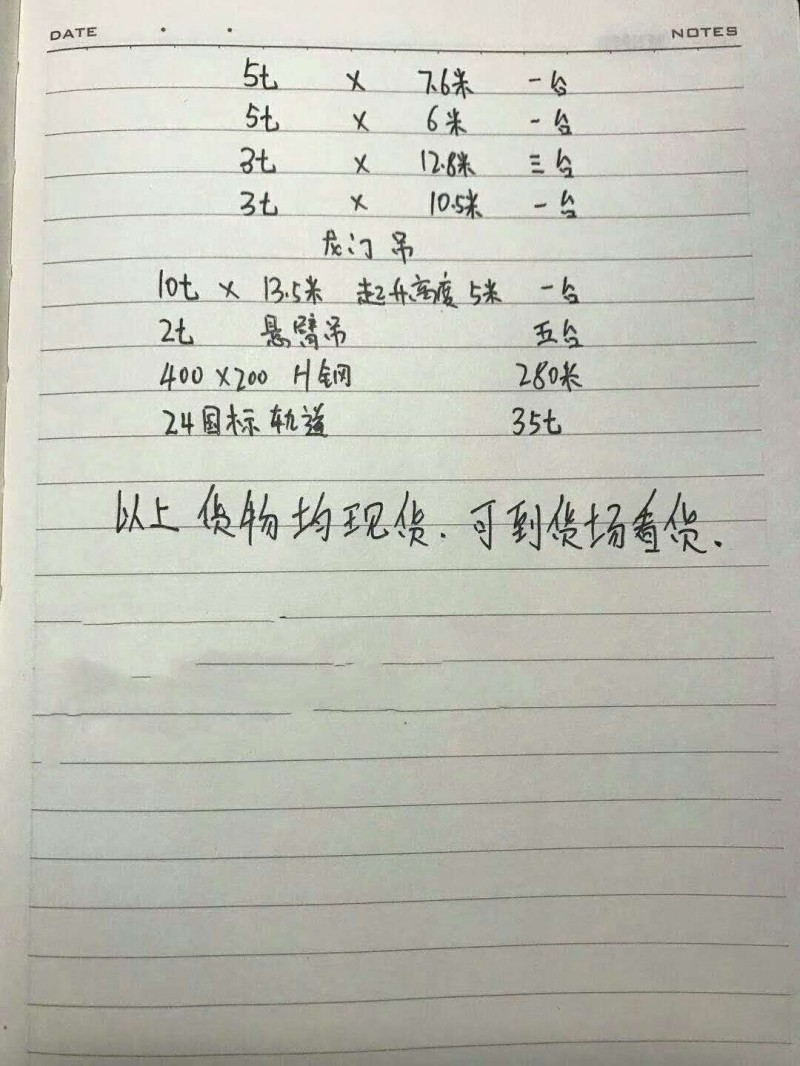 DATE NOTES
5t × 7.6米 一台
5t × 6米 一台
3t × 12.8米 三台
3t × 10.5米 一台
龙门吊
10t × 13.5米 起升高度5米 一台
2t 悬臂吊 五台
400×200 H钢 280米
24国标轨道 35t
以上货物均现货.可到货场看货.